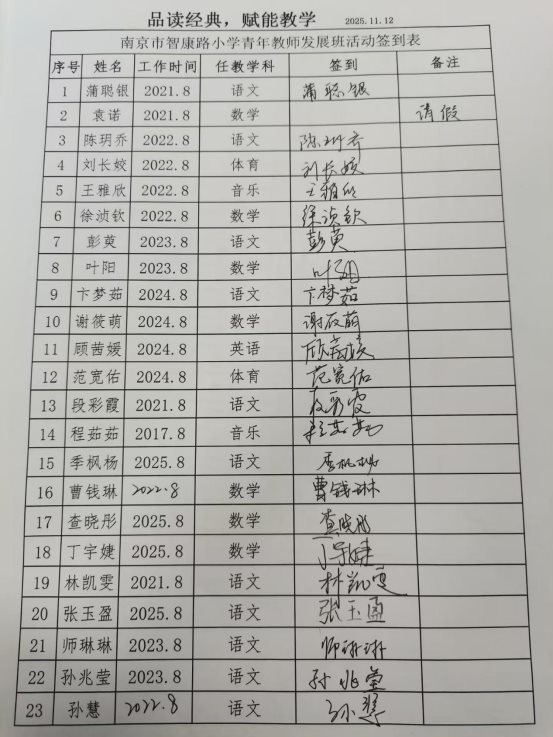 品读经典，赋能教学 2025.11.12
南京市智康路小学青年教师发展班活动签到表
序号 姓名 工作时间 任教学科 签到 备注
1 蒲聪银 2021.8 语文 蒲聪银
2 袁诺 2021.8 数学 请假
3 陈玥乔 2022.8 语文 陈玥乔
4 刘长姣 2022.8 体育 刘长姣
5 王雅欣 2022.8 音乐 王雅欣
6 徐浈钦 2022.8 数学 徐浈钦
7 彭萸 2023.8 语文 彭萸
8 叶阳 2023.8 数学 叶阳
9 卞梦茹 2024.8 语文 卞梦茹
10 谢筱萌 2024.8 数学 谢筱萌
11 顾茜媛 2024.8 英语 顾茜媛
12 范宽佑 2024.8 体育 范宽佑
13 段彩霞 2021.8 语文 段彩霞
14 程茹茹 2017.8 音乐 程茹茹
15 季枫杨 2025.8 语文 季枫杨
16 曹钱琳 2022.8 数学 曹钱琳
17 查晓彤 2025.8 数学 查晓彤
18 丁宇婕 2025.8 数学 丁宇婕
19 林凯雯 2021.8 语文 林凯雯
20 张玉盈 2025.8 语文 张玉盈
21 师琳琳 2023.8 语文 师琳琳
22 孙兆莹 2023.8 语文 孙兆莹
23 孙慧 2022.8 语文 孙慧